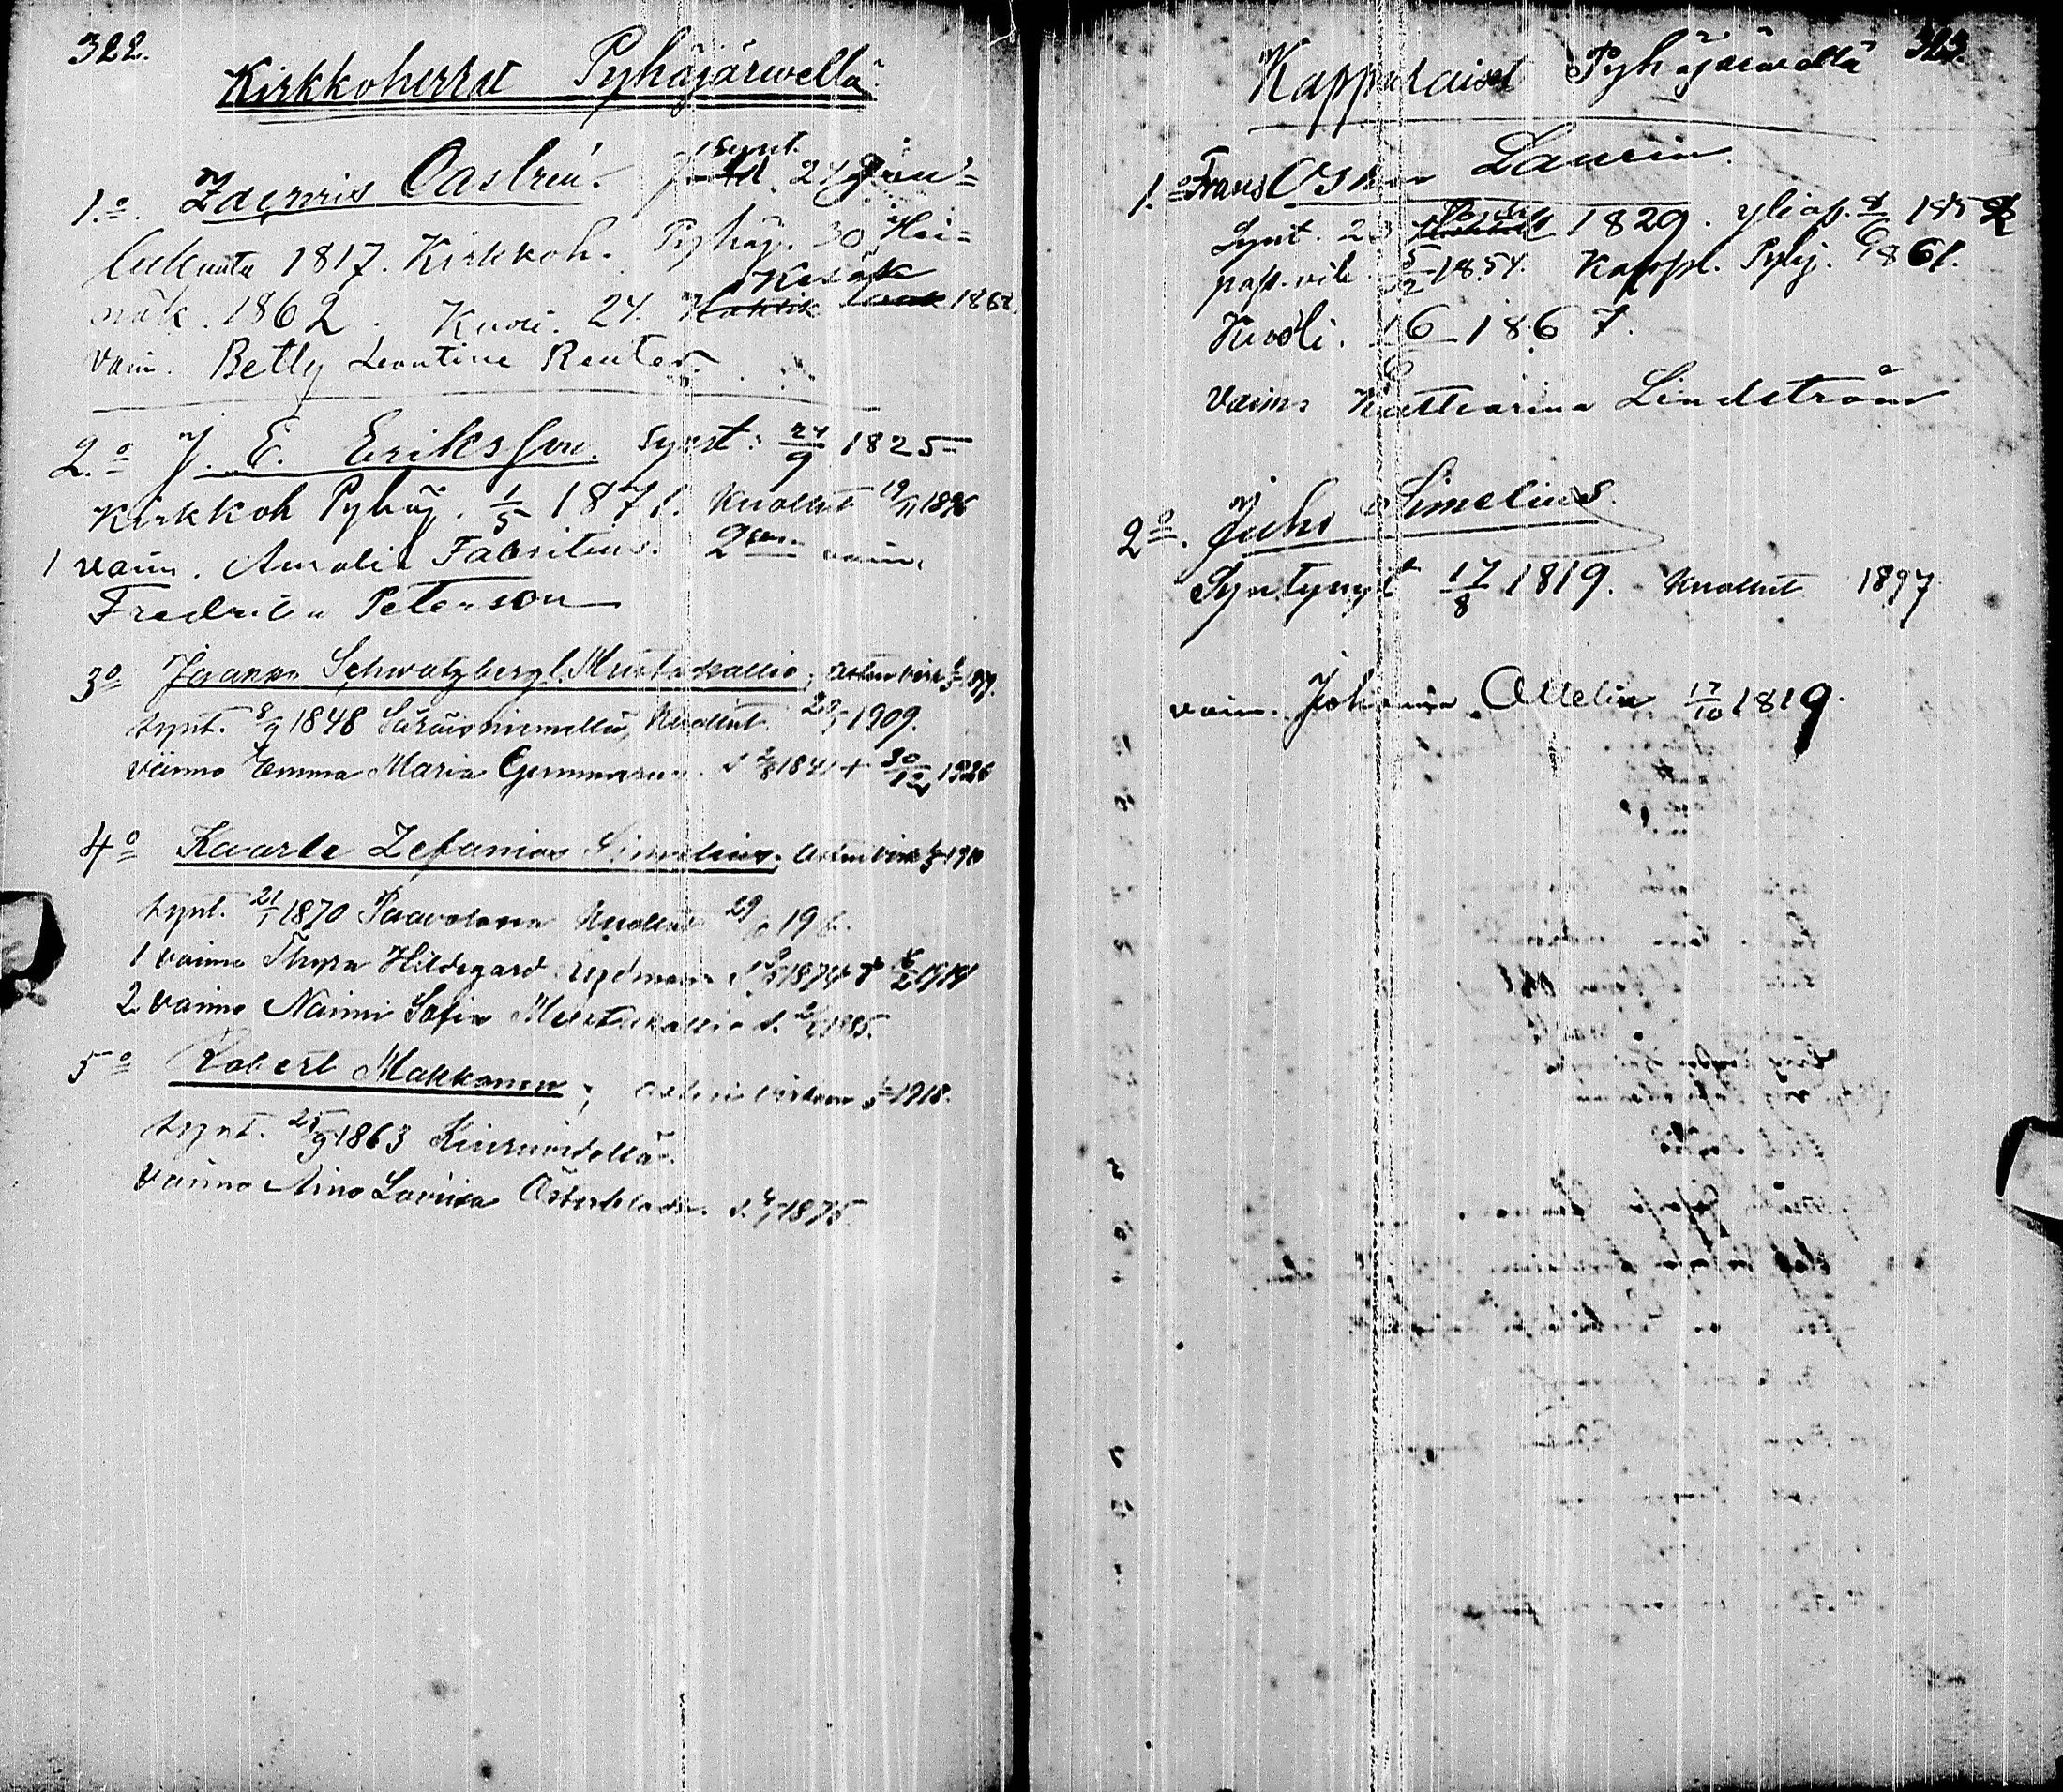 322.
Kirkkoherrat Pyhäjärwellä.
1.o. Zacharis Castrén. synt. 24 Jou=
lukuuta 1817. Kirkkoh. Pyhäj. 30 Hei=
näk. 1862. Kuoli. 24. Kesäk 1868.
Vaim. Betty Leontine Reuter.
2.o J. E. Eriksson. Synt: 24/9 1825
Kirkkoh Pyhäj. 1/5 1871. Kuollut 19/11 1896
1 vaim. Amalia Fabritius. 2sen vaim.
Fredrika Peterson
3o Jaakko Schwatzberg l. Mustakallio, Astui virk 1/5 1899.
synt. 8/9 1848 Säräisniemellä, Kuollut 1909.
Vaimo Emma Maria 1841 + 30/12 1926
4o Kaarle Zefanias Simelius; Astui virk 1/5 1910
synt. 21/1 1870 Paavolassa Kuollut 29
1 vaimo Thyra Hildegard 1874 + 6/2 1914
2 vaimo Naimi Sofia Mustakallio s. 1885.
5o Robert Makkonen; Astui virkaan 1/5 1918.
synt. 25/9 1863 Kiuruvedellä.
Vaimo Aino Loviisa Österbladh. s. 1875.
323.
Kappalaiset Pyhäjärvellä
1.o Frans Oskar Laurin.
Synt. 23 1829. yliop. 185
pap. vih. 5/2 1854. Kappl. Pyhj. 1861.
Kuoli. 16 1867.
Vaimo Katharina Lindström
2o. Juho Simelius.
Syntynyt 17/8 1819. Kuollut 1897
vaim. Johanna Ottelin 17/10 1819.